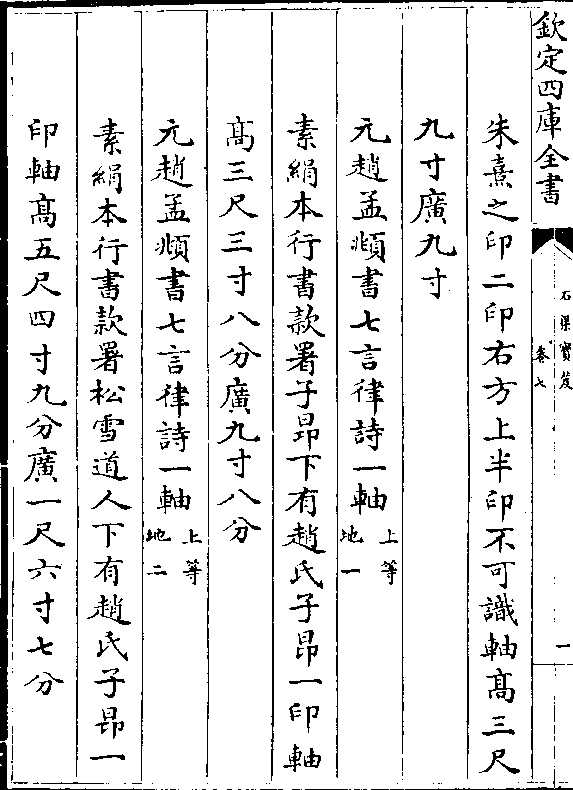 欽定四庫全書
石渠寶笈
卷七
一
朱熹之印二印右方上半印不可識軸髙三尺
九寸廣九寸
元趙孟頫書七言律詩一軸 上等 地一
素絹本行書款署子昻下有趙氏子昻一印軸
髙三尺三寸八分廣九寸八分
元趙孟頫書七言律詩一軸 上等 地二
素絹本行書款署松雪道人下有趙氏子昻一
印軸髙五尺四寸九分廣一尺六寸七分